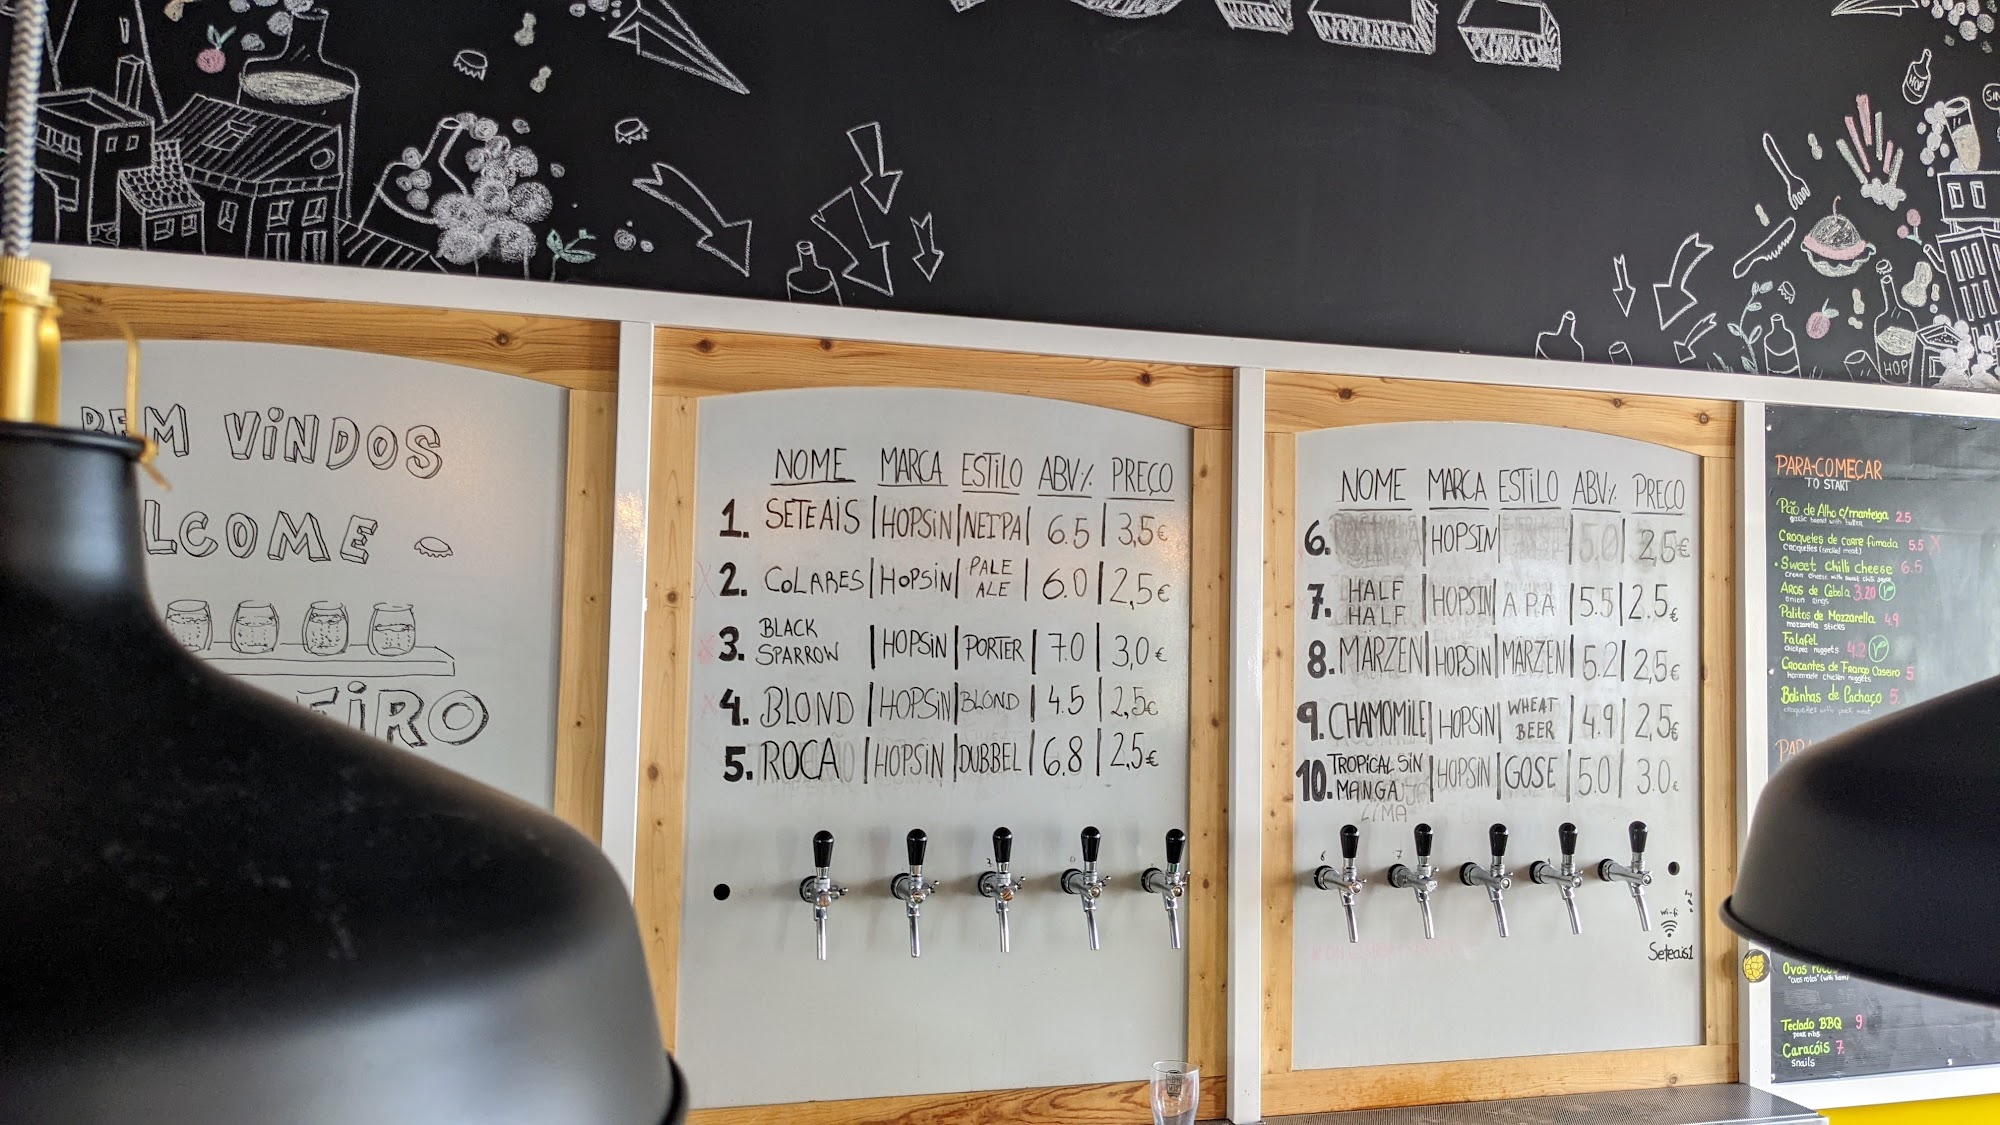 VINDOS
NOME MARCA ESTILO ABV% PREÇO
1. SETEAIS | HOPSIN | NEIPA | 6.5 | 3,5€
2. COLARES | HOPSIN | PALE ALE | 6.0 | 2,5€
3. BLACK SPARROW | HOPSIN | PORTER | 7.0 | 3,0€
4. BLOND | HOPSIN | BLOND | 4.5 | 2,5€
5. ROCA | HOPSIN | DUBBEL | 6.8 | 2,5€
NOME MARCA ESTILO ABV% PREÇO
6. HOPSIN | 5.0 | 2,5€
7. HALF HALF | HOPSIN | APA | 5.5 | 2.5€
8. MÄRZEN | HOPSIN | MÄRZEN | 5.2 | 2,5€
9. CHAMOMILE | HOPSIN | WHEAT BEER | 4.9 | 2,5€
10. TROPICAL SIN MANGA | HOPSIN | GOSE | 5.0 | 3.0€
LIMA
wi-fi
Seteais1
HOP
HOP
PARA-COMEÇAR
TO START
Pão de Alho c/manteiga 2.5
garlic bread with butter
Croquetes de carne fumada 5.5
croquettes (smoked meat)
Sweet chilli cheese 6.5
cream cheese with sweet chilli sauce
Aros de Cebola 3.20
onion rings
Palitos de Mozzarella 4.9
mozzarella sticks
Falafel 4.2
chickpea nuggets
Crocantes de Frango Caseiro 5
homemade chicken nuggets
Bolinhas de Cachaço 5
croquettes with pork meat
Ovos
Teclado BBQ 9
pork ribs
Caracóis 7
snails